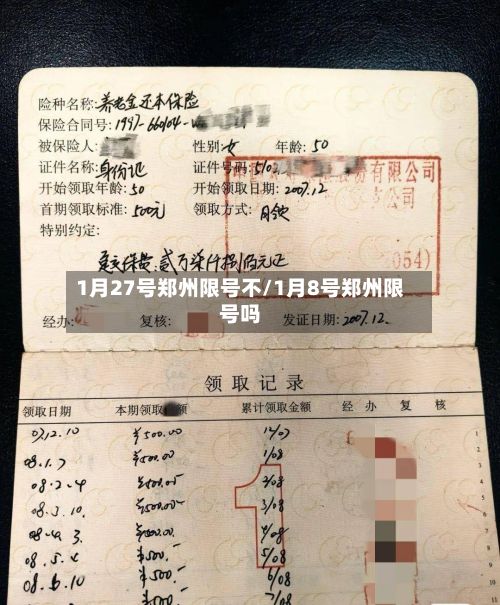 险种名称:养老金还本保险
保险合同号:1997-660104-
被保险人: 性别:女 年龄:50
证件名称:身份证 证件号码:5102
有限公司
开始领取年龄:50 开始领取日期:2007.12
公司
首期领取标准:500元 领取方式:月领
特别约定:
保费贰万柒仟捌佰元正
054)
1月27号郑州限号不/1月8号郑州限
号吗
经办: 复核: 发证日期:2007.12.
领取记录
领取日期 本期领取 额 累计领取金额 经办 复核
07.12.10 ¥500.00 12/07 1
08.1.7 ¥500.00 1/08 2
08.2.4 ¥500.00 2/08 3
08.3.10. ¥500.00 3/08 4
08.4.3. ¥500.00 4/08 5
08.5.4 ¥500. 5/08 6
08.6.10 ¥500. 6/08 7
¥500. 7/08 8